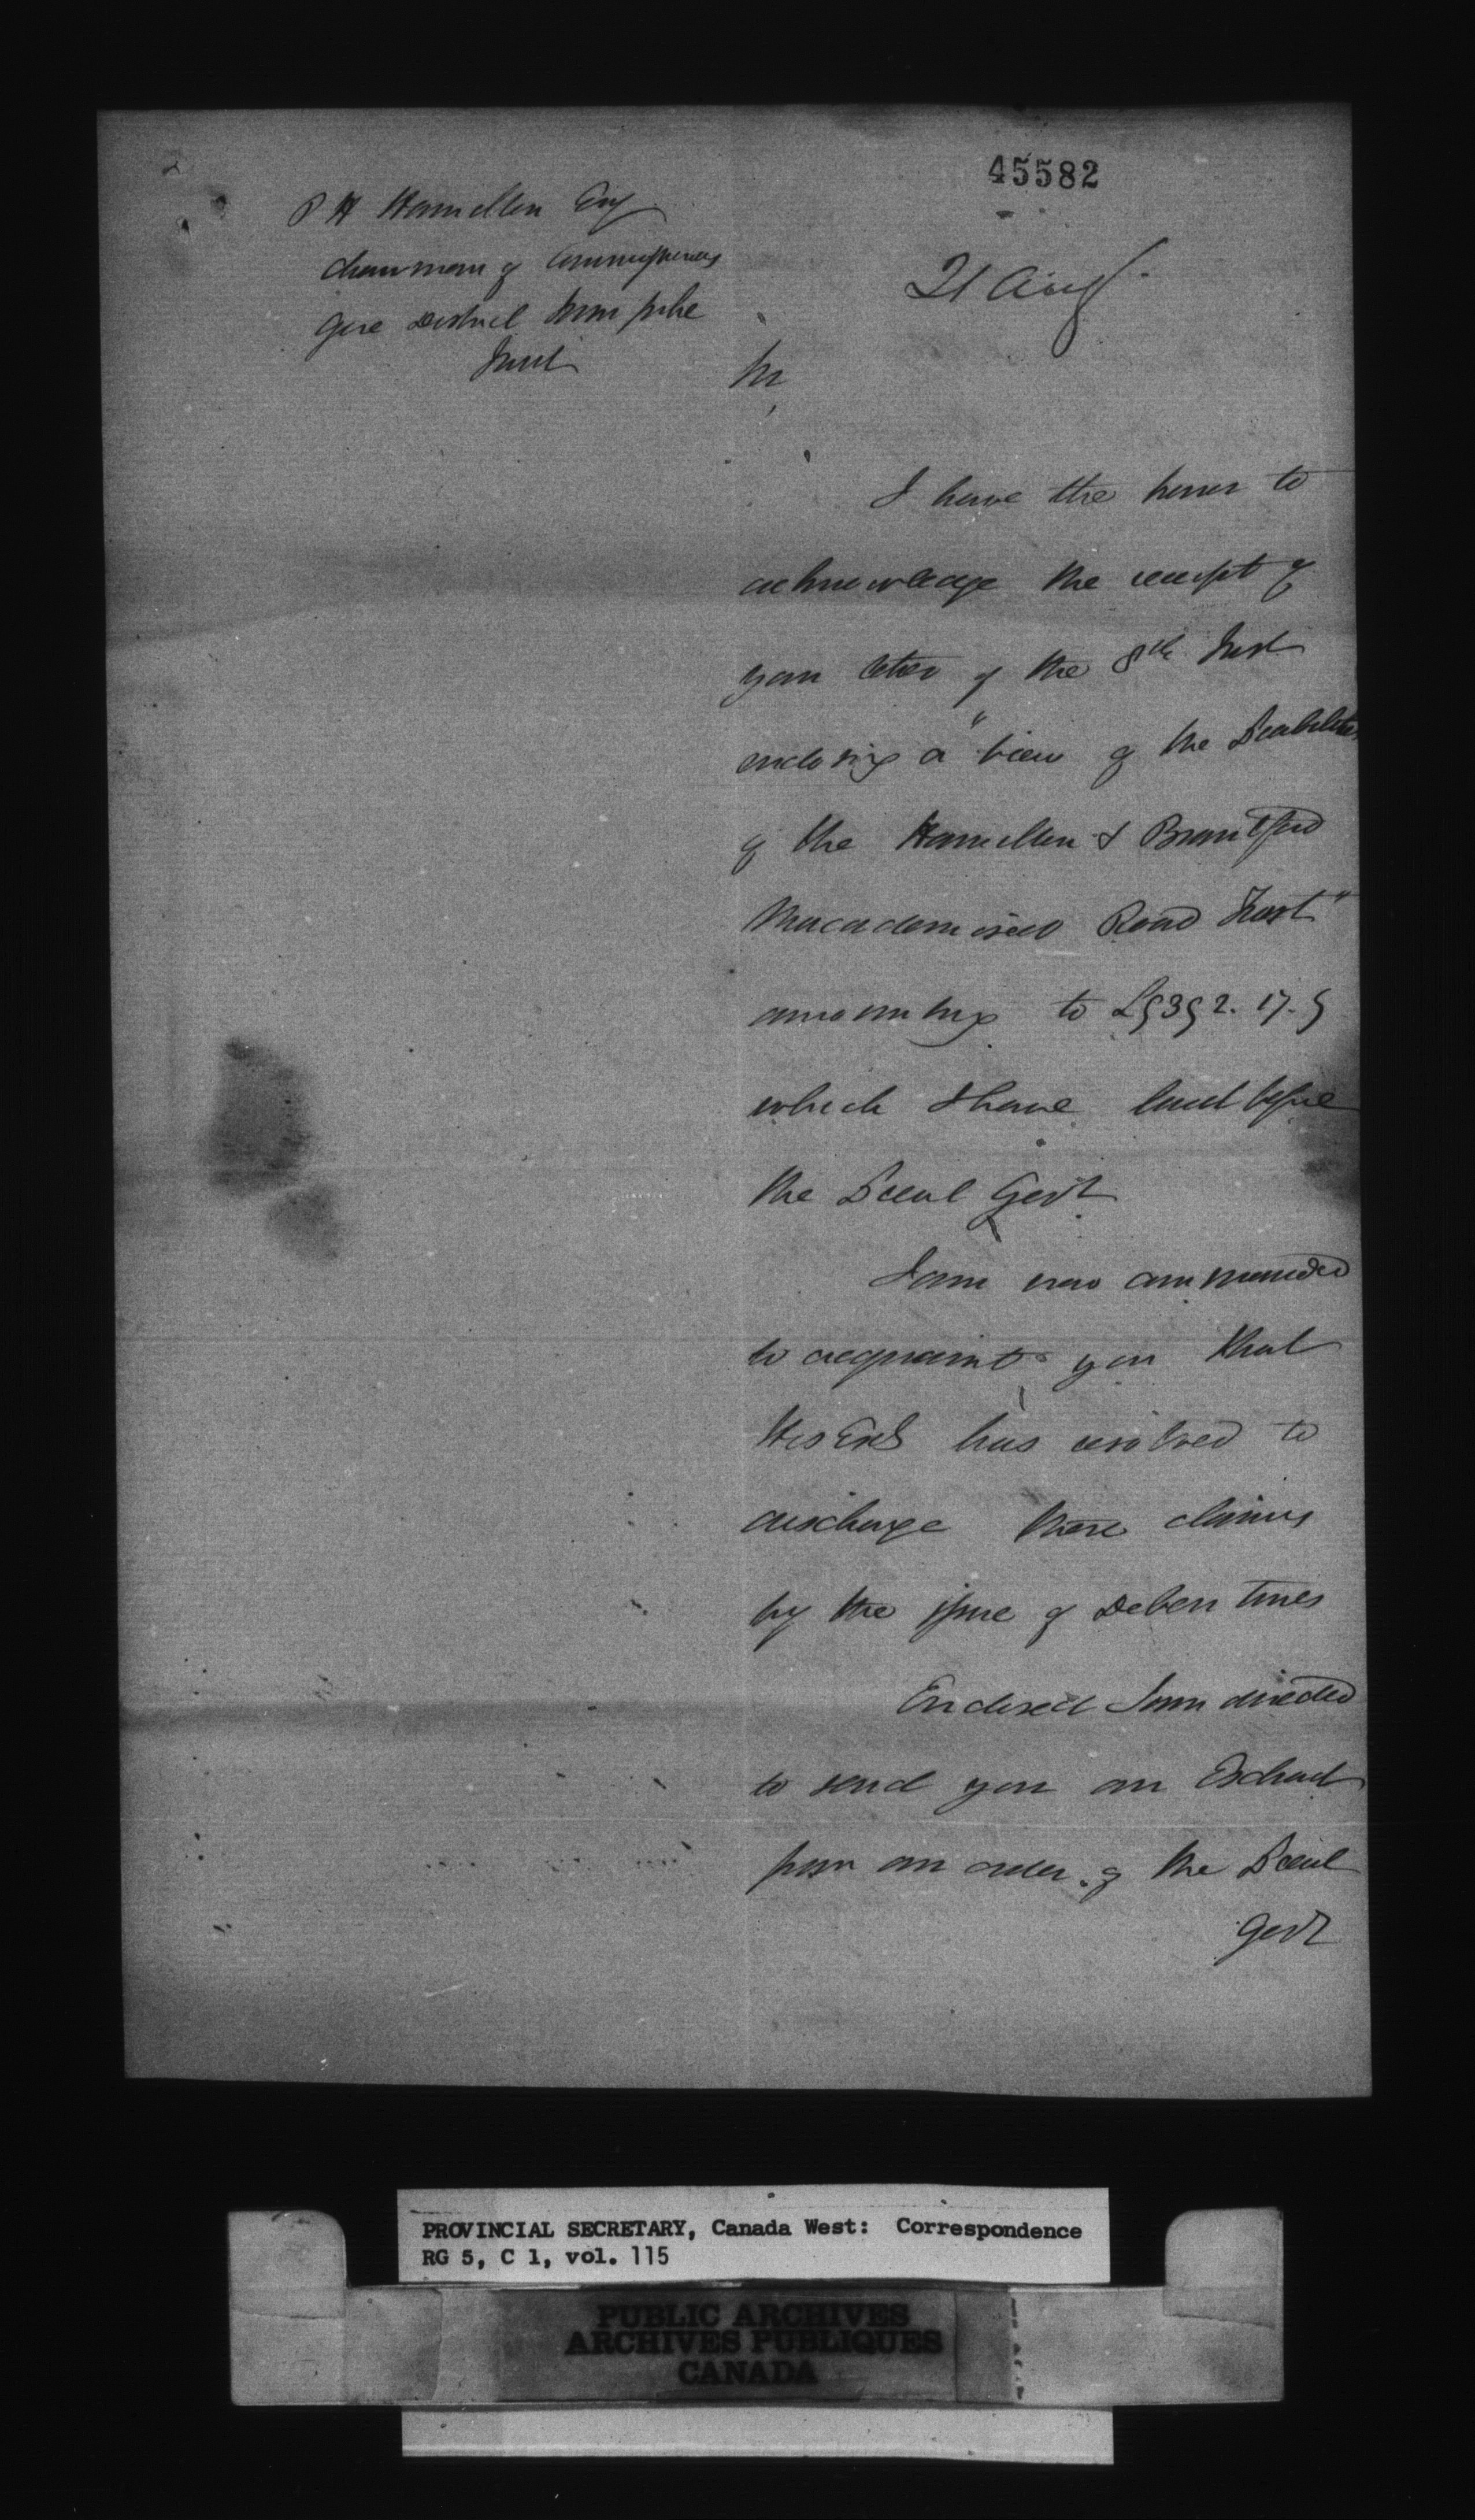 45582
P H Hamilton Esq
Chairman of Commissioners
Gore District Turnpike
Trust
21 Aug.
Sir,
I have the honor to
acknowledge the receipt of
your letter of the 8th Inst
enclosing a "view of the Liabilities
of the Hamilton & Brantford
Macadamised Road Trust"
amounting to £5352. 17. 5
which I have laid before
the Govt
I am now commanded
to acquaint you that
His Exc has resolved to
discharge these claims
by the issue of Debentures
Enclosed I am directed
to send you an Extract
from an order of the
Govt
PROVINCIAL SECRETARY, Canada West: Correspondence
RG 5, C 1, vol. 115
PUBLIC ARCHIVES
ARCHIVES PUBLIQUES
CANADA